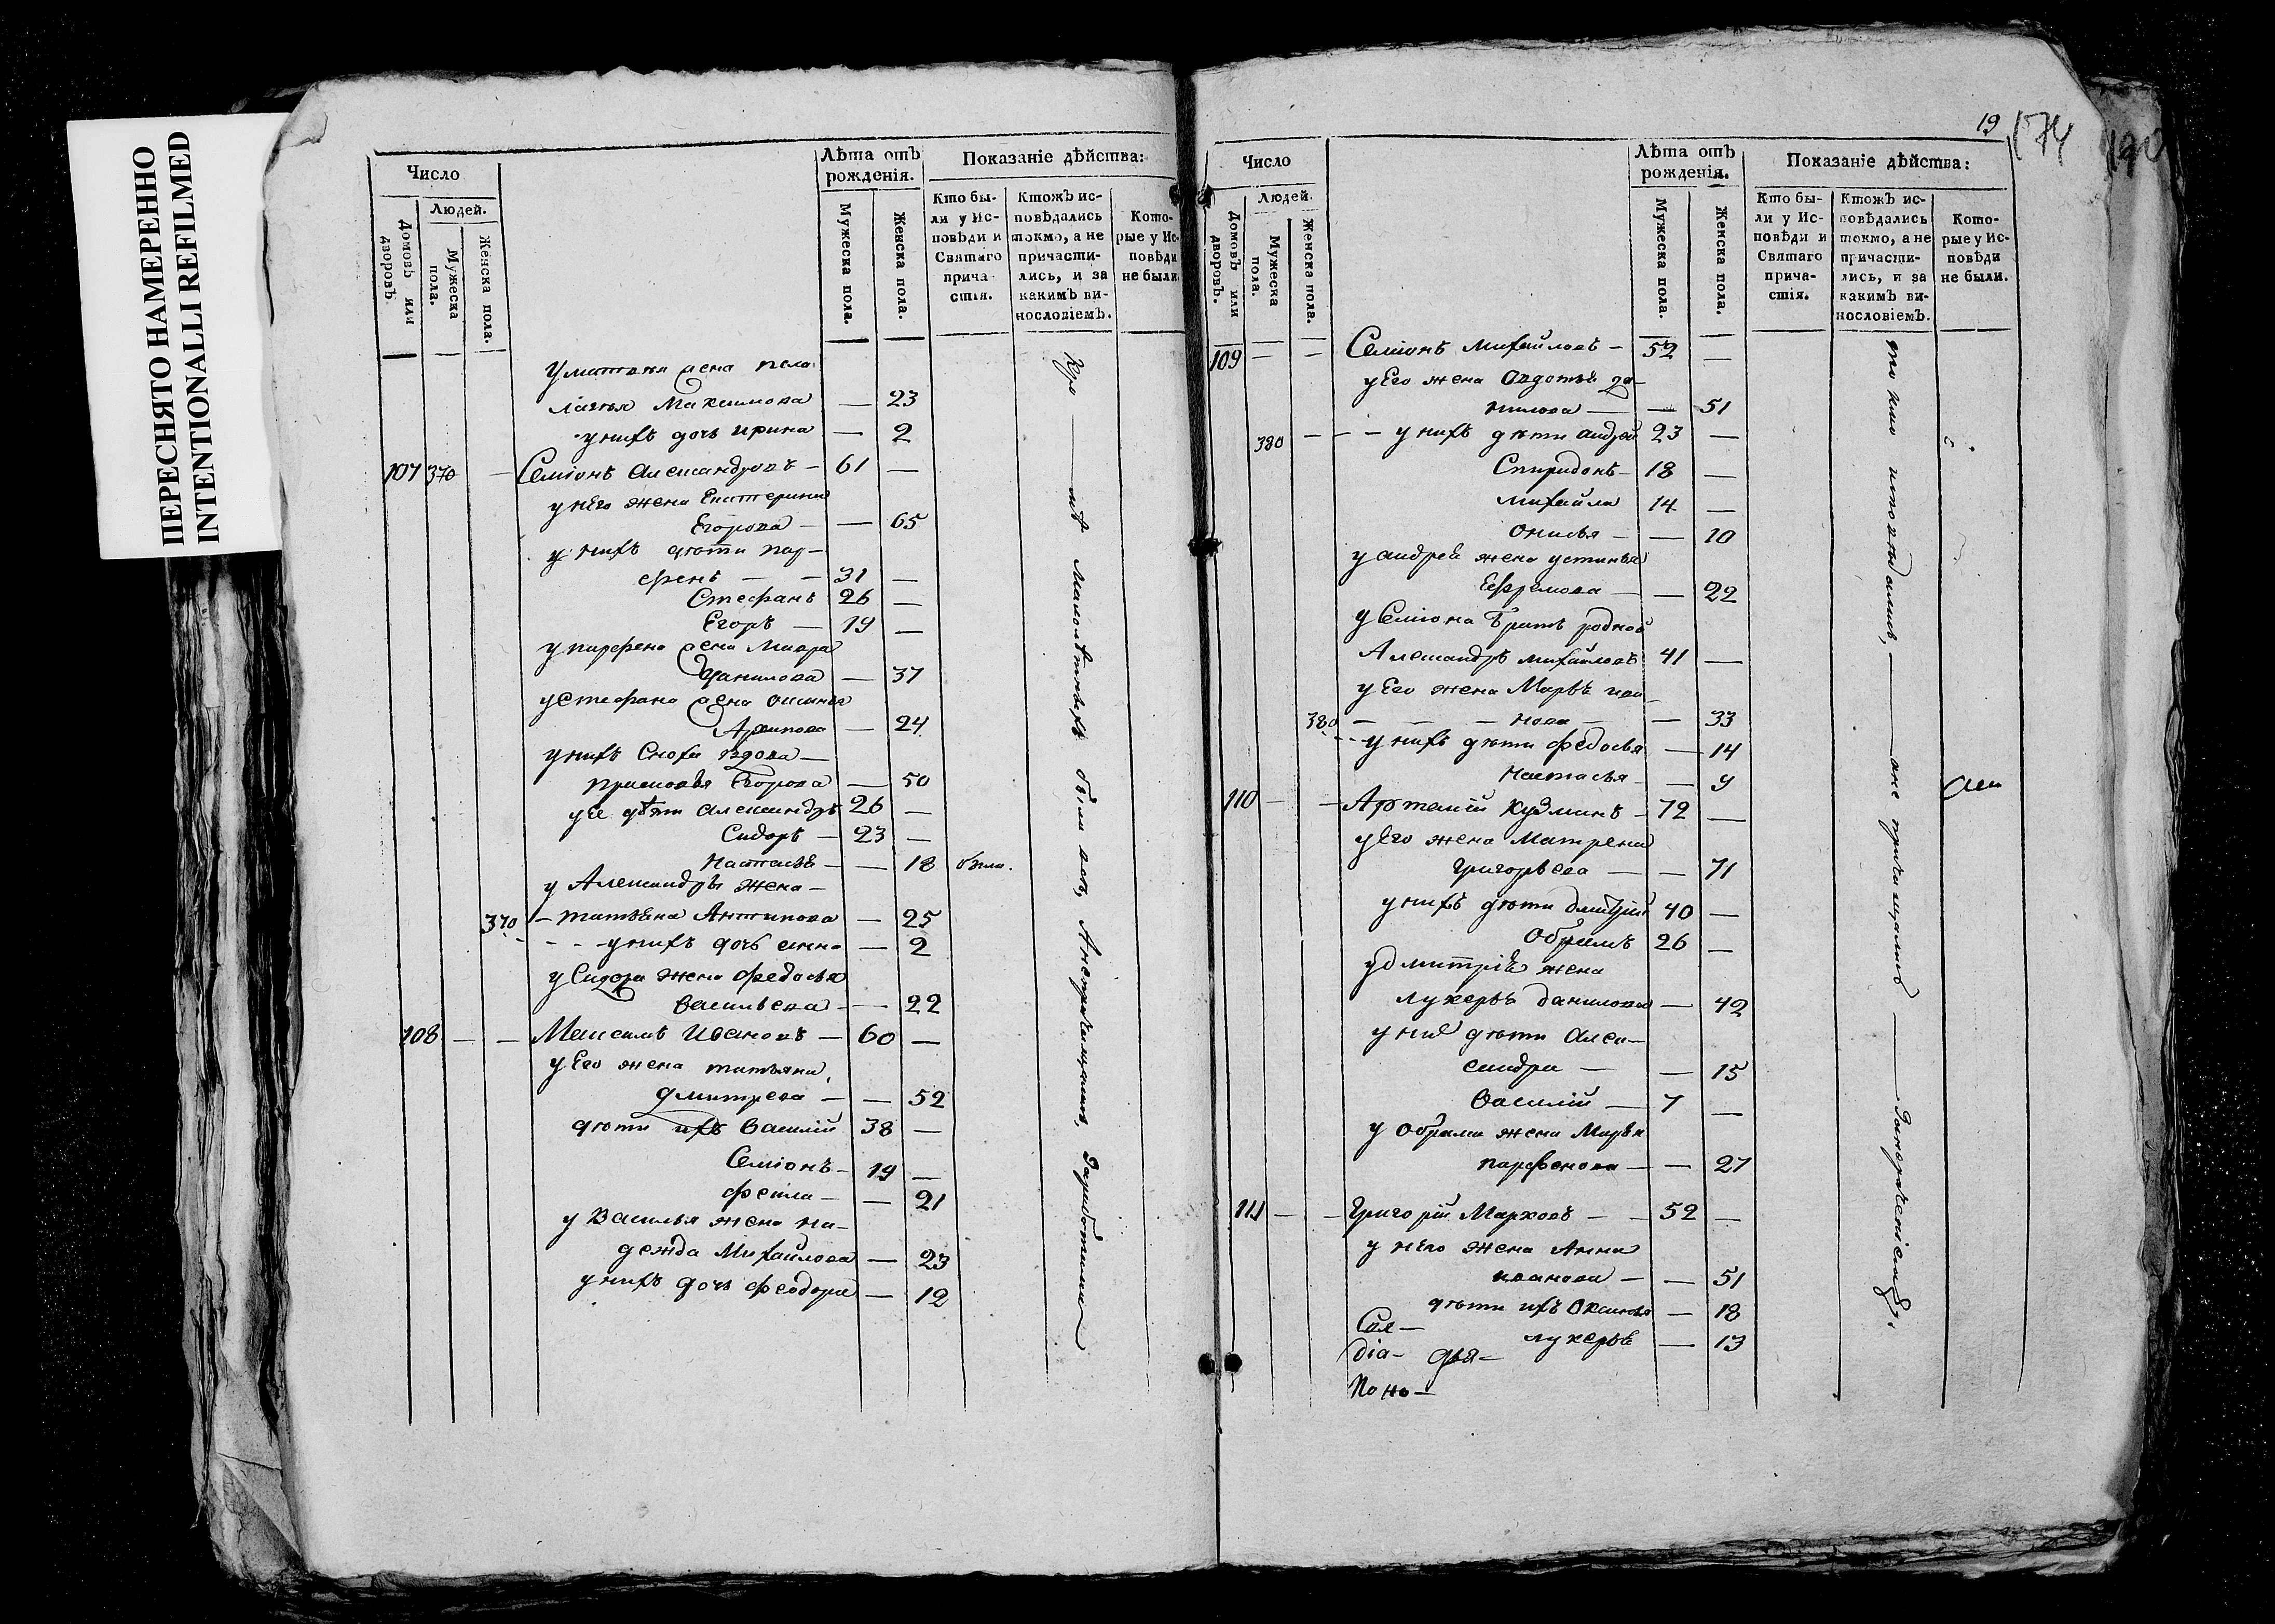 ПЕРЕСНЯТО НАМЕРЕННО
INTENTIONALLI REFILMED
Число
Лѣта отъ рожденія.
Показаніе дѣйства:
Людей.
Домовъ или дворовъ.
Мужеска пола.
Женска пола.
Мужеска пола.
Женска пола.
Кто бы-
ли у Ис-
повѣди и
Святаго
прича-
стія.
Ктожъ ис-
повѣдались
токмо, а не
причасти-
лись, и за
какимъ ви-
нословіемъ.
Кото-
рые у Ис-
повѣди
не были.
жена пела
лагѣя Максимова — 23
у нихъ дочь ирина — 2
107 370 — Семіонъ Александровъ — 61 —
у него жена Екатерина
Егорова — — 65
у нихъ дѣти пар-
фенъ — — 31 —
Стефанъ 26 —
Егоръ — 19 —
у парфена жена Мавра
Данилова — 37
у стефана жена
Архипова — 24
у нихъ сноха вдова —
прасковья Егорова — 50
у ее дѣти александръ 26 —
Сидоръ — 23 —
Настасья — — 18 были.
у Александры жена —
370 — татьяна Антипова — 25
у нихъ дочь анна — 2
у Сидора жена федосья
васильева — — 22
108 — — Максимъ Ивановъ — 60 —
у Его жена татьяна
дмитрева — — 52
дѣти ихъ василій 38 —
Семіонъ — 19 —
фекла — — 21
у Василья жена на-
дежда Михайлова — 23
у нихъ дочь феодора — 12
19
174
Число
Лѣта отъ рожденія.
Показаніе дѣйства:
Людей.
Домовъ или дворовъ.
Мужеска пола.
Женска пола.
Мужеска пола.
Женска пола.
Кто бы-
ли у Ис-
повѣди и
Святаго
прича-
стія.
Ктожъ ис-
повѣдались
токмо, а не
причасти-
лись, и за
какимъ ви-
нословіемъ.
Кото-
рые у Ис-
повѣди
не были.
109 — — Семіонъ Михайловъ — 52 —
у Его жена Овдотья да-
нилова — — 51
380 — — — у нихъ дѣти андрей 23 —
Спиридонъ — 18 —
михайла 14 —
Онисья — — 10
у андрея жена устинья
Ефремова — — 22
у Семіона братъ родной
Александръ михайловъ 41 —
у Его жена Марья ива-
380 — — — нова — — 33
у нихъ дѣти федосья — 14
Настасья — — 9
110 — — Артемій кузминъ — 72 —
у Его жена Матрена
Григорьева — — 71
у нихъ дѣти дмитрій 40 —
Обрамъ 26 —
у дмитрія жена
лукерья данилова — 42
у них дѣти алек-
сандра — — 15
Василій — 7 —
у Обрама жена Марья
парфенова — — 27
111 — — Григорій Марковъ — — 52 —
у него жена Анна
иванова — — 51
дѣти ихъ Оксинья — 18
лукерья — 13
діа- дья-
По но-